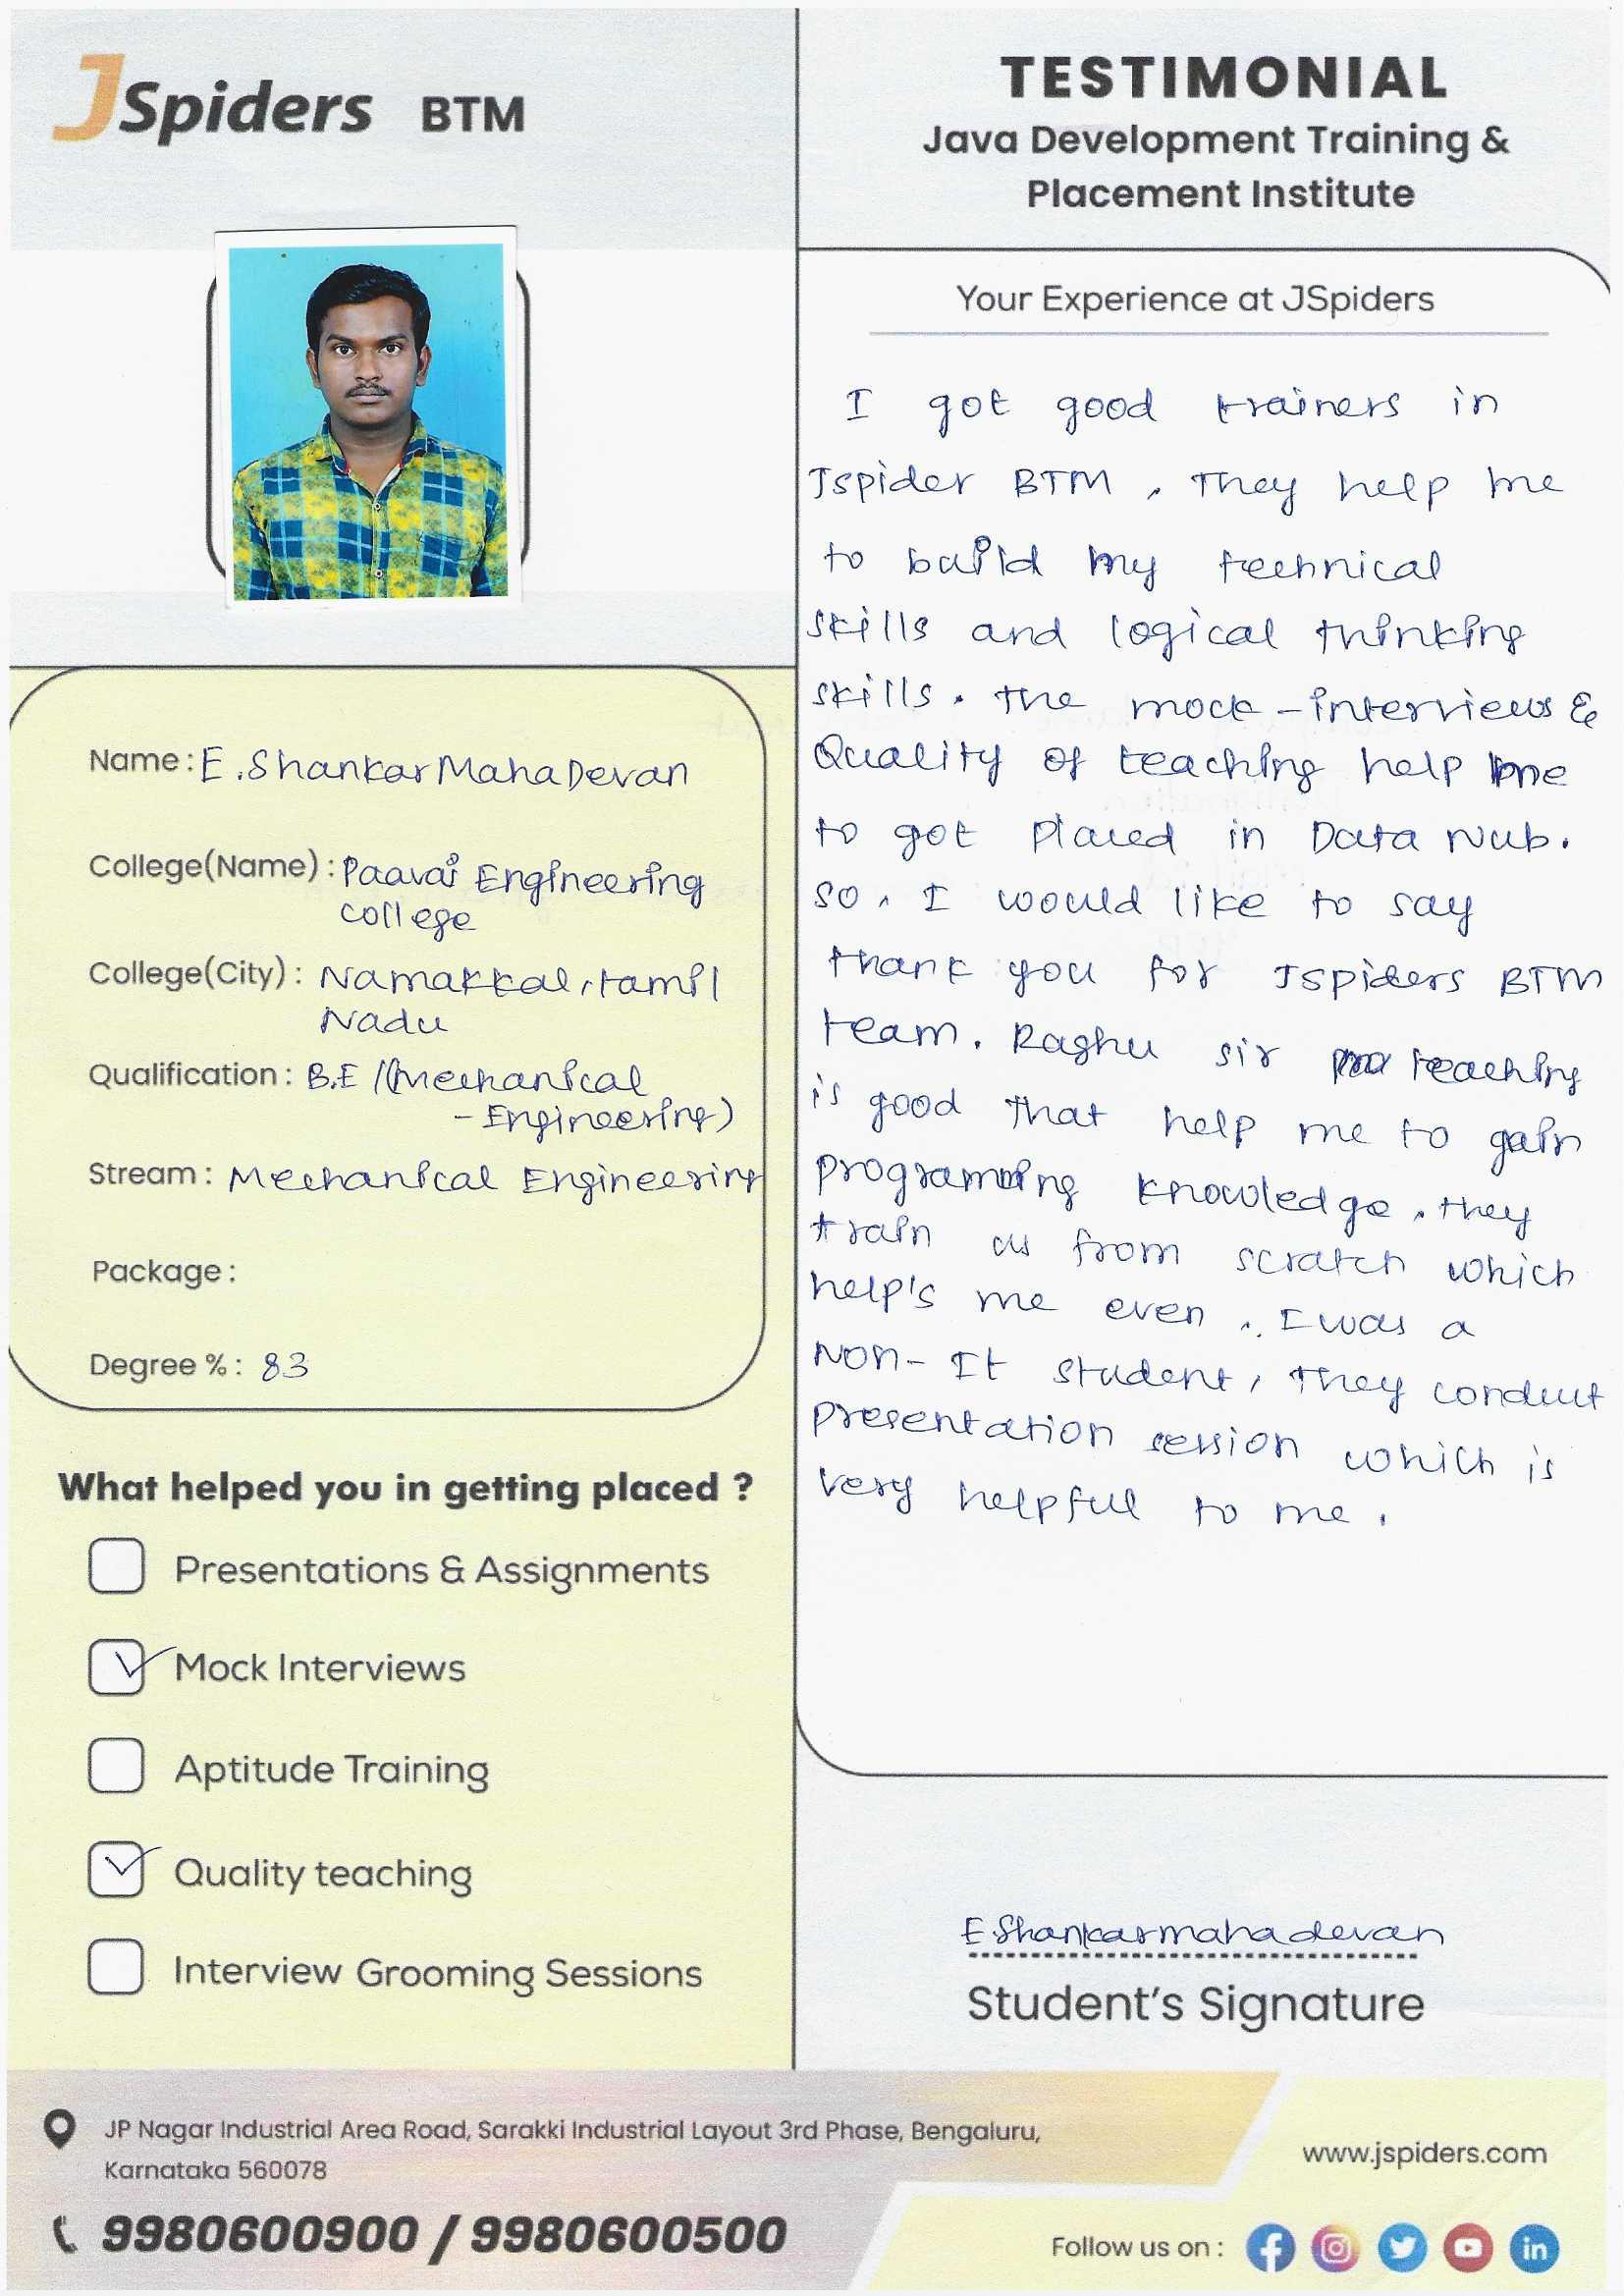 JSpiders BTM
TESTIMONIAL
Java Development Training &
Placement Institute
Name : E. Shankar Maha Devan
College(Name) : Paavai Engineering
college
College(City) : Namakkal, tamil
Nadu
Qualification : B.E /(Mechanical
- Engineering)
Stream : Mechanical Engineering
Package :
Degree % : 83
What helped you in getting placed ?
Presentations & Assignments
Mock Interviews
Aptitude Training
Quality teaching
Interview Grooming Sessions
Your Experience at JSpiders
I got good trainers in
Jspider BTM , They help me
to build my technical
skills and logical thinking
skills. The mock - interviews &
Quality of teaching help me
to got placed in Data Nub.
so, I would like to say
thank you for Jspiders BTM
team. Raghu sir teaching
is good that help me to gain
programming knowledge. they
train us from scratch which
help's me even . I was a
NON- It student, They conduct
presentation session which is
very helpful to me .
E Shankarmahadevan
Student's Signature
JP Nagar Industrial Area Road, Sarakki Industrial Layout 3rd Phase, Bengaluru,
Karnataka 560078
9980600900 / 9980600500
www.jspiders.com
Follow us on :